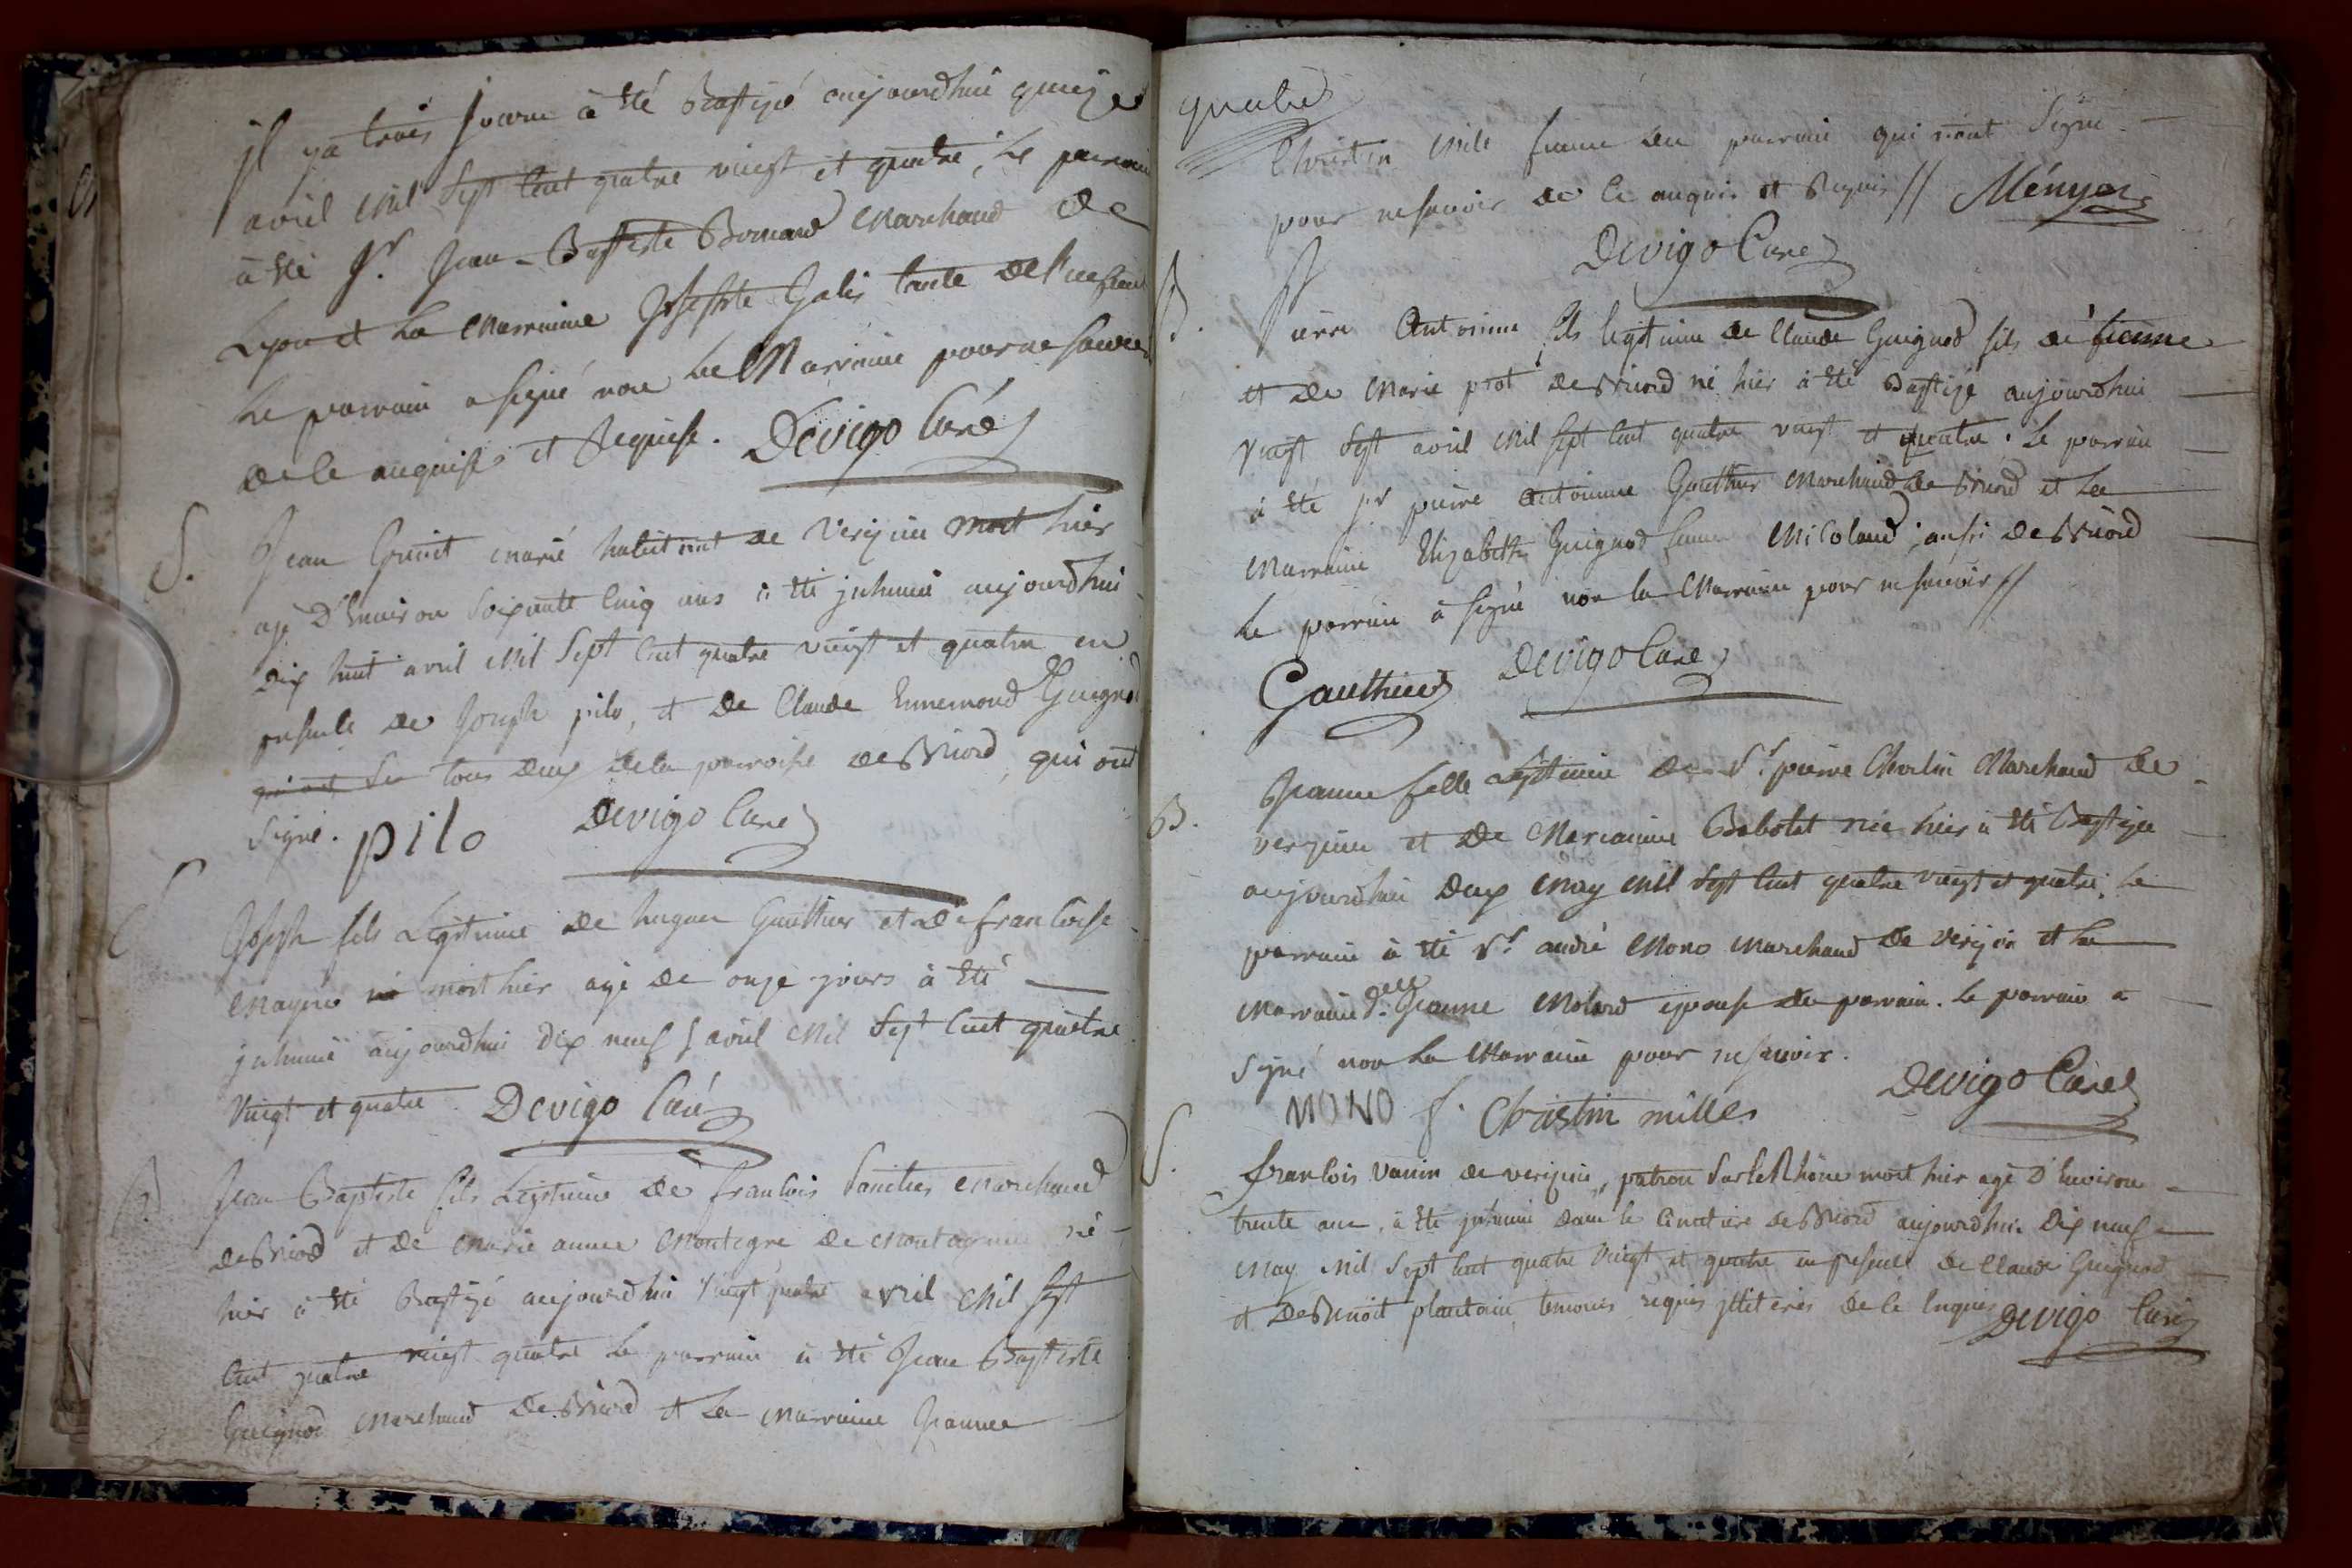 il y a trois jours à été Baptizé aujourdhui quinze
avril mil sept cent quatre vingt et quatre, le parrain
à été Sr. Jean-Baptiste Marchand de
Lyon et La Marraine Josephte Galis tante de l'enfant
Le parrain a signé non La Marraine pour ne savoir
de ce enquise et Requise. Devigo Curé
S. Jean Benoit marié habitant de Verizieu mort hier
agé D'Environ soixante Cinq ans à été inhumé aujourdhui
dix huit avril mil sept cent quatre vingt et quatre en
presence de Joseph pilo, et de Claude Ennemond Guignod
tous deux de la parroisse de Briord, qui ont
signé. pilo Devigo Curé
S Joseph fils Legitime de hugue Gauthier et de francoise
mort hier agé de onze jours à été
inhumé aujourdhui dix neuf avril mil sept cent quatre
vingt et quatre Devigo Curé
B. Jean Baptiste fils Legitime de francois marchand
de Briord et de marie anne Montagne de montagnieu né
hier à été Baptizé aujourdhui vingt quatre avril mil sept
cent quatre vingt quatre Le parrain à été Jean Baptiste
Guignod marchand de Briord et La marraine Jeanne
quatre
Christin femme du parrain qui n'ont signé
pour ne savoir de ce enquis et Requis //
Devigo Curé
B. Pierre Antoinne fils legitime de Claude Guignod fils d'étienne
et de Marie prot de Briord né hier à été Baptizé aujourdhui
vingt sept avril mil sept cent quatre vingt et quatre. Le parrain
à été sr pierre antoinne Gauthier marchand de Briord et La
marraine Elizabeth Guignod femme Micoland, aussi de Briord
Le parrain à signé non la Marraine pour ne savoir //
Gauthier Devigo Curé
B. Jeanne fille Legitime de Sr. pierre Christin Marchand de
verizieu et de Marianne Babolat née hier à été Baptizée
aujourdhui deux may mil sept cent quatre vingt et quatre. Le
parrain à été Sr. andré Mono marchand de verizieu et La
marraine delle Jeanne Molard epouse du parrain. Le parrain a
signé non La Marraine pour ne savoir.
MONO Christin Devigo Curé
S. francois vanin de verizieu, patron sur le Rhône mort hier agé D'Environ
trente ans, à été inhumé dans le Cimetiere de Briord aujourdhui dix neuf
may mil sept cent quatre vingt et quatre en presence de Claude Guignod
et de Benoit plantain temoins requis illiterés de ce Enquis Devigo Curé